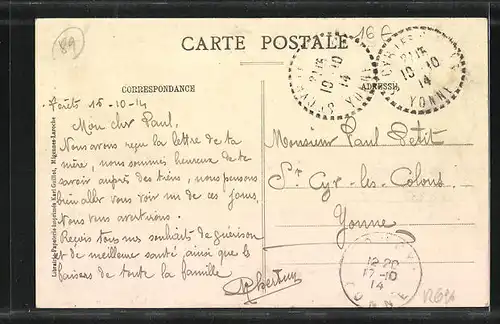 89
16 €
CARTE POSTALE
CORRESPONDANCE
ADRESSE
ST CYR LES
YONNE
10-10
14
CYR LES
21 15
10-10
14
YONNE
15-10-14
Mon cher Paul,
Nous avons reçu la lettre de ta
mère, nous sommes heureux de te
savoir auprès des tiens, nous pensons
bien aller vous voir un de ces jours.
Nous vous avertirons.
Reçois tous nos souhaits de guérison
et de meilleure santé, ainsi que les
baisers de toute la famille
Monsieur Paul Petit
St Cyr-les-Colons
Yonne
12-20
17-10
14
Librairie-Papeterie-Imprimerie Karl Guillot, Migennes-Laroche